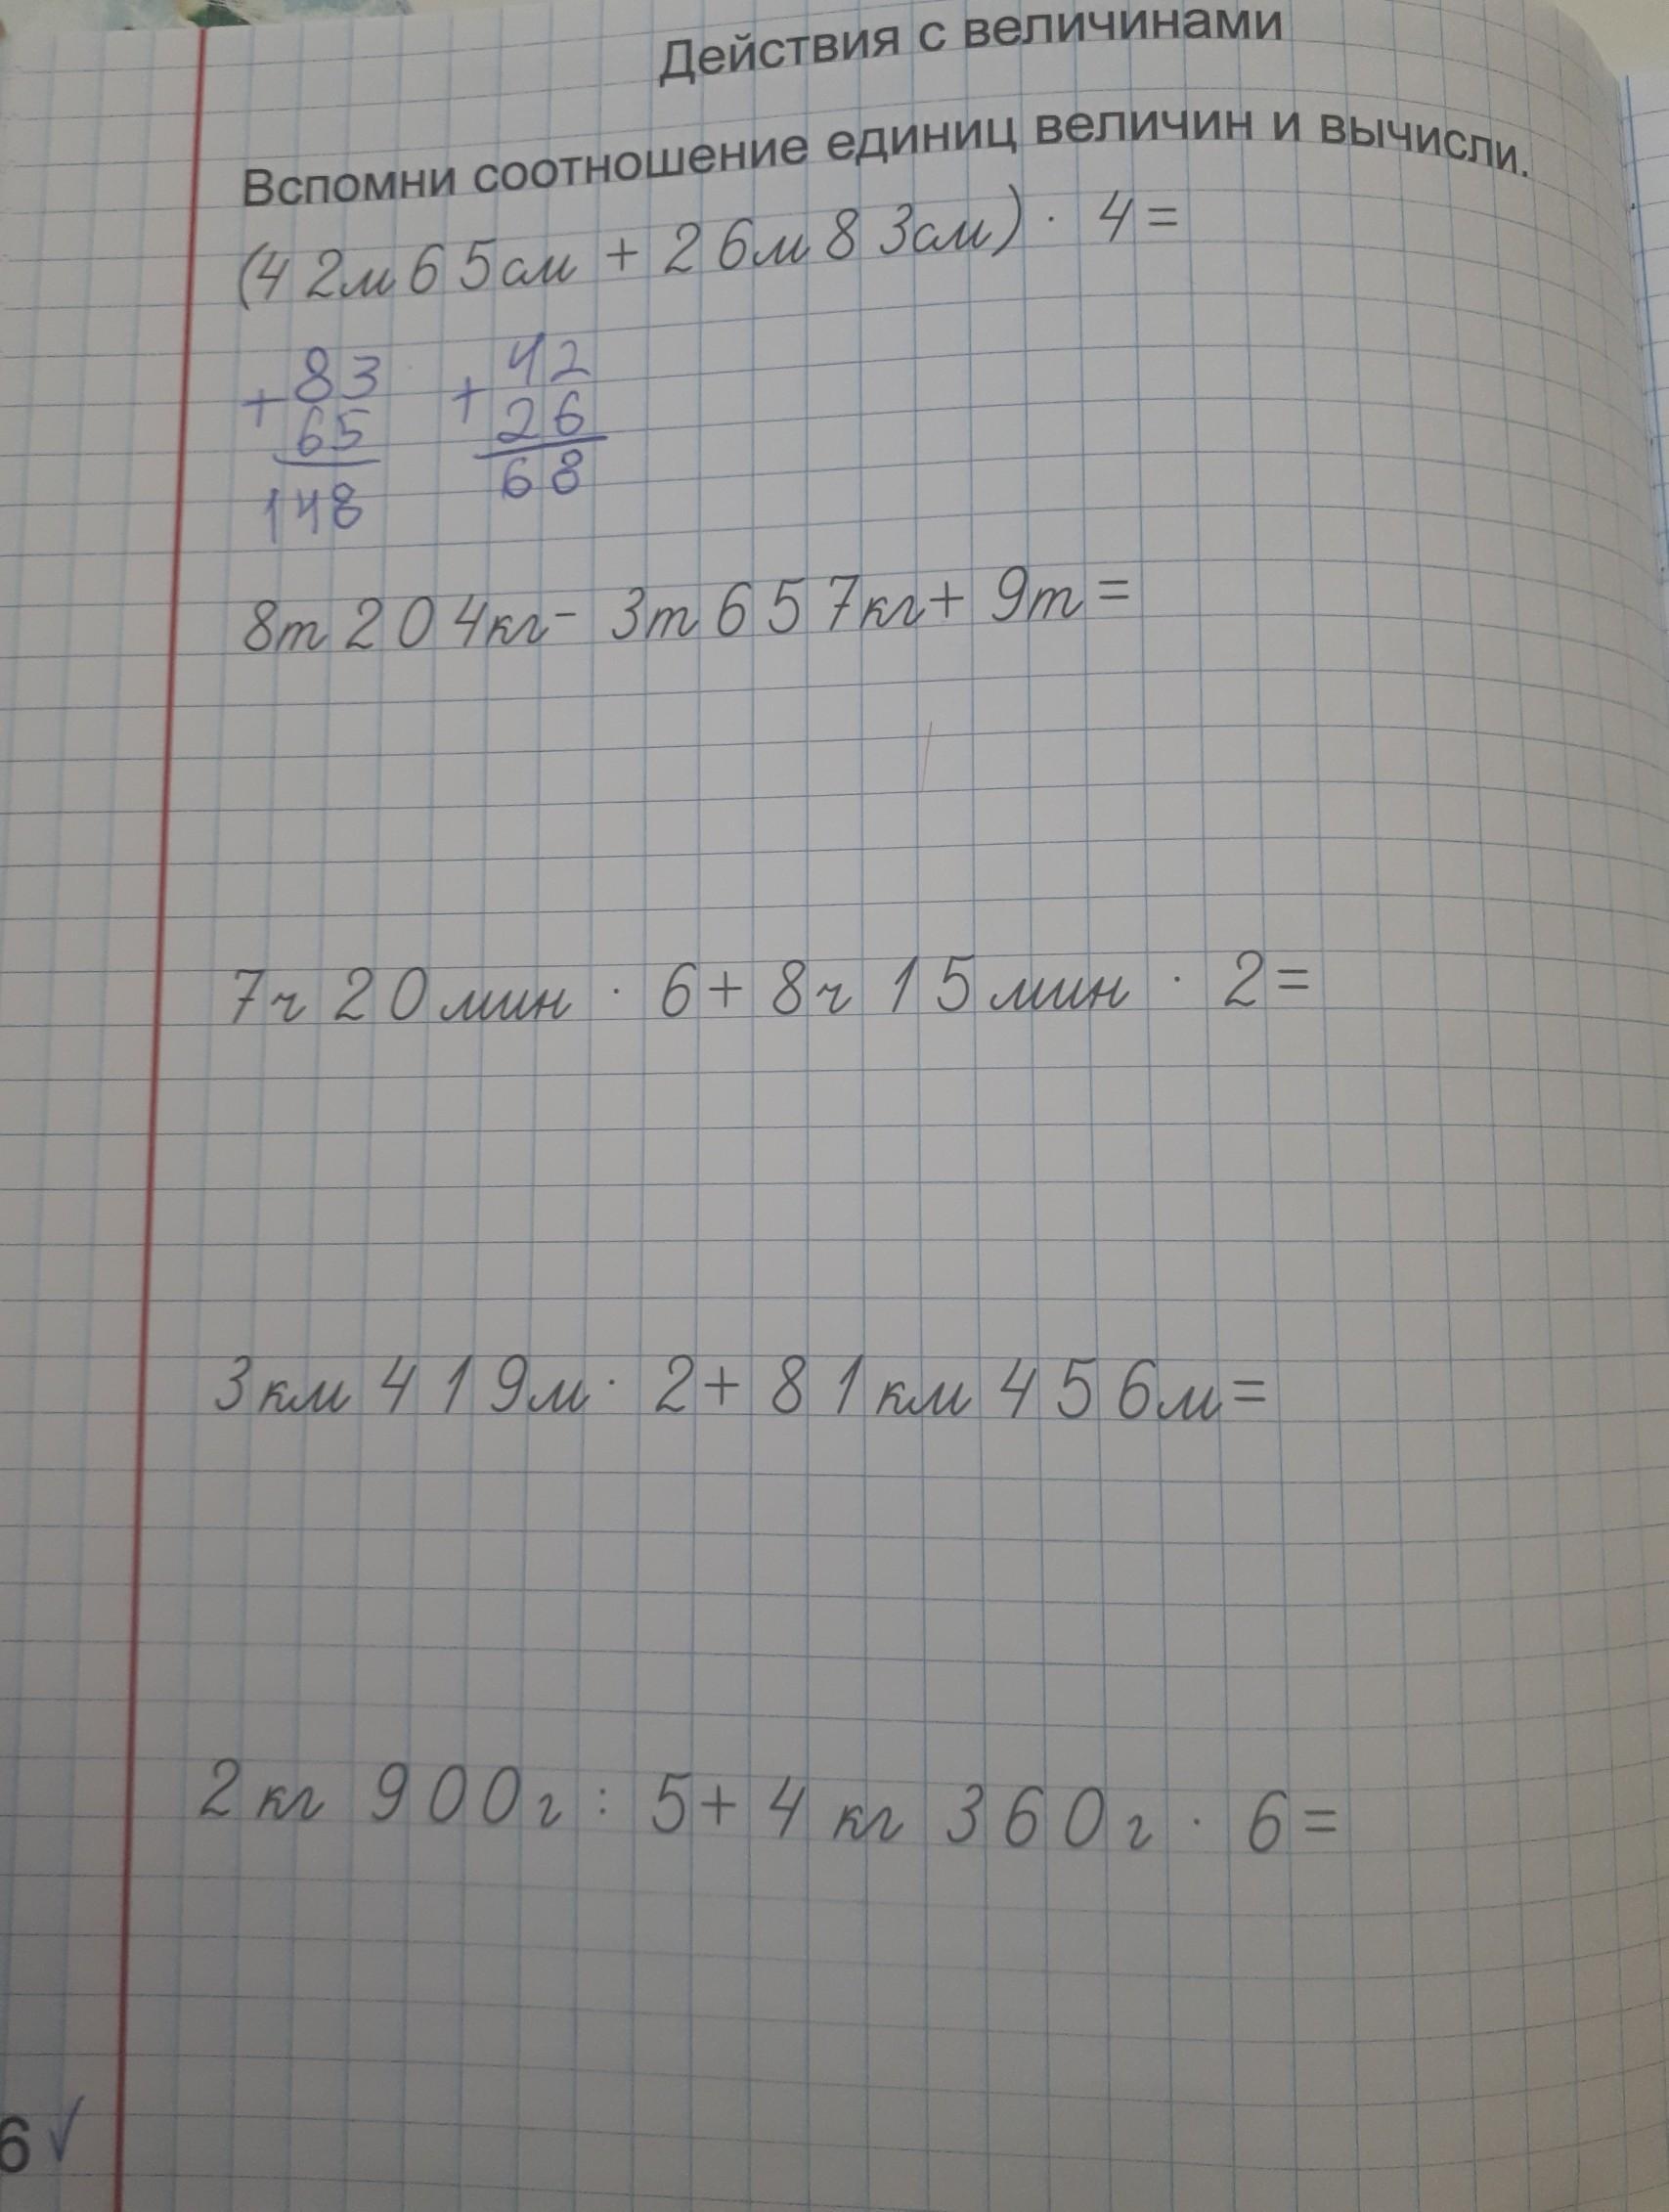 Действия с величинами
Вспомни соотношение единиц величин и вычисли.
(42м65см + 26м83см) · 4=
+83 +42
65 26
148 68
8т204кг- 3т657кг+ 9т=
7ч 20мин · 6+ 8ч 15мин · 2=
3км 419м· 2+ 81км 456м=
2кг 900г: 5+ 4кг 360г · 6=
6✓